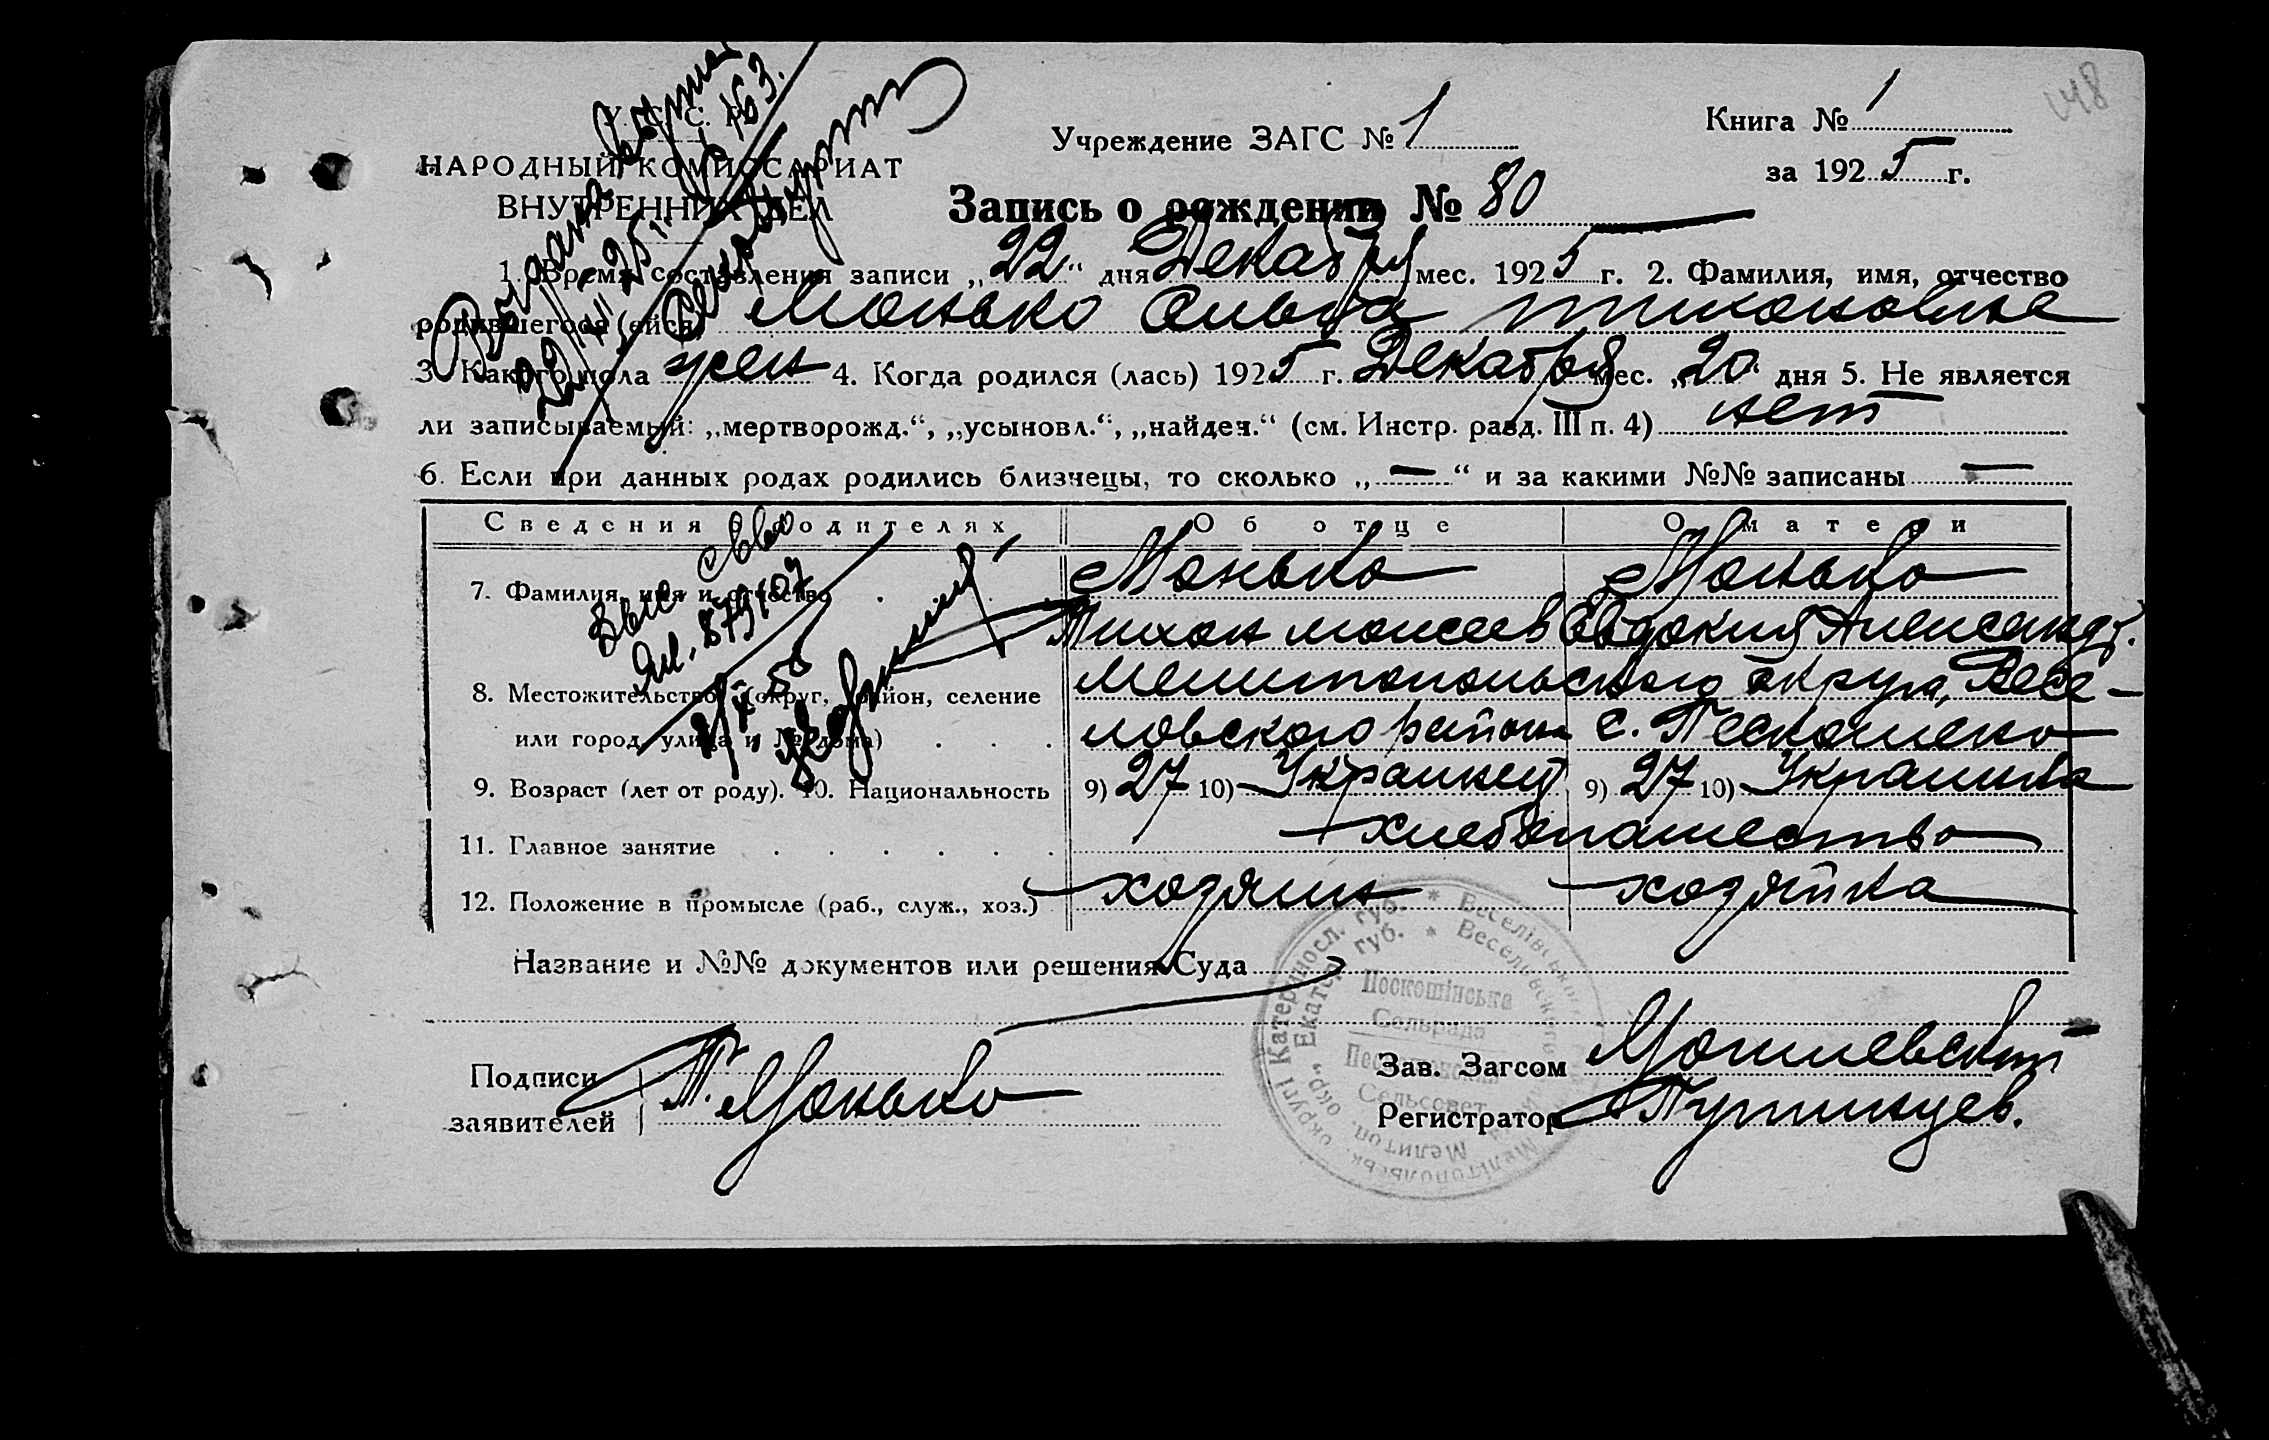 148
У. С. С. Р.
НАРОДНЫЙ КОМИССАРИАТ
ВНУТРЕННИХ ДЕЛ
Учреждение ЗАГС № 1
Книга № 1
за 1925 г.
Запись о рождении № 80
1. Время составления записи „22“ дня Декабря мес. 1925 г. 2. Фамилия, имя, отчество
родившегося (ейся) Монько Ольга Тихоновна
3. Какого пола жен 4. Когда родился (лась) 1925 г. Декабря мес. „20“ дня 5. Не является
ли записываемый: „мертворожд.“, „усыновл.“, „найден.“ (см. Инстр. разд. III п. 4) нет
6. Если при данных родах родились близнецы, то сколько „—“ и за какими №№ записаны —
Сведения о родителях Об отце О матери
7. Фамилия, имя и отчество Монько Монько
Тихон Моисеев Евдокия Александр.
8. Местожительство (округ, район, селение Мелитопольского округа, Весе-
или город, улица и № дома) ловского района с. Пескошено
9. Возраст (лет от роду). 10. Национальность 9) 27 10) Украинец 9) 27 10) Украинка
11. Главное занятие хлебопашество
12. Положение в промысле (раб., служ., хоз.) хозяин хозяйка
Название и №№ документов или решения Суда
Подписи
заявителей Т. Монько
Зав. Загсом
Регистратор
Катериносл. губ. * Веселівськ
Екатер. губ. * Весельвского
Мелітопольськ. округі
Мелитоп. окр.
Сельрада
Сельсовет